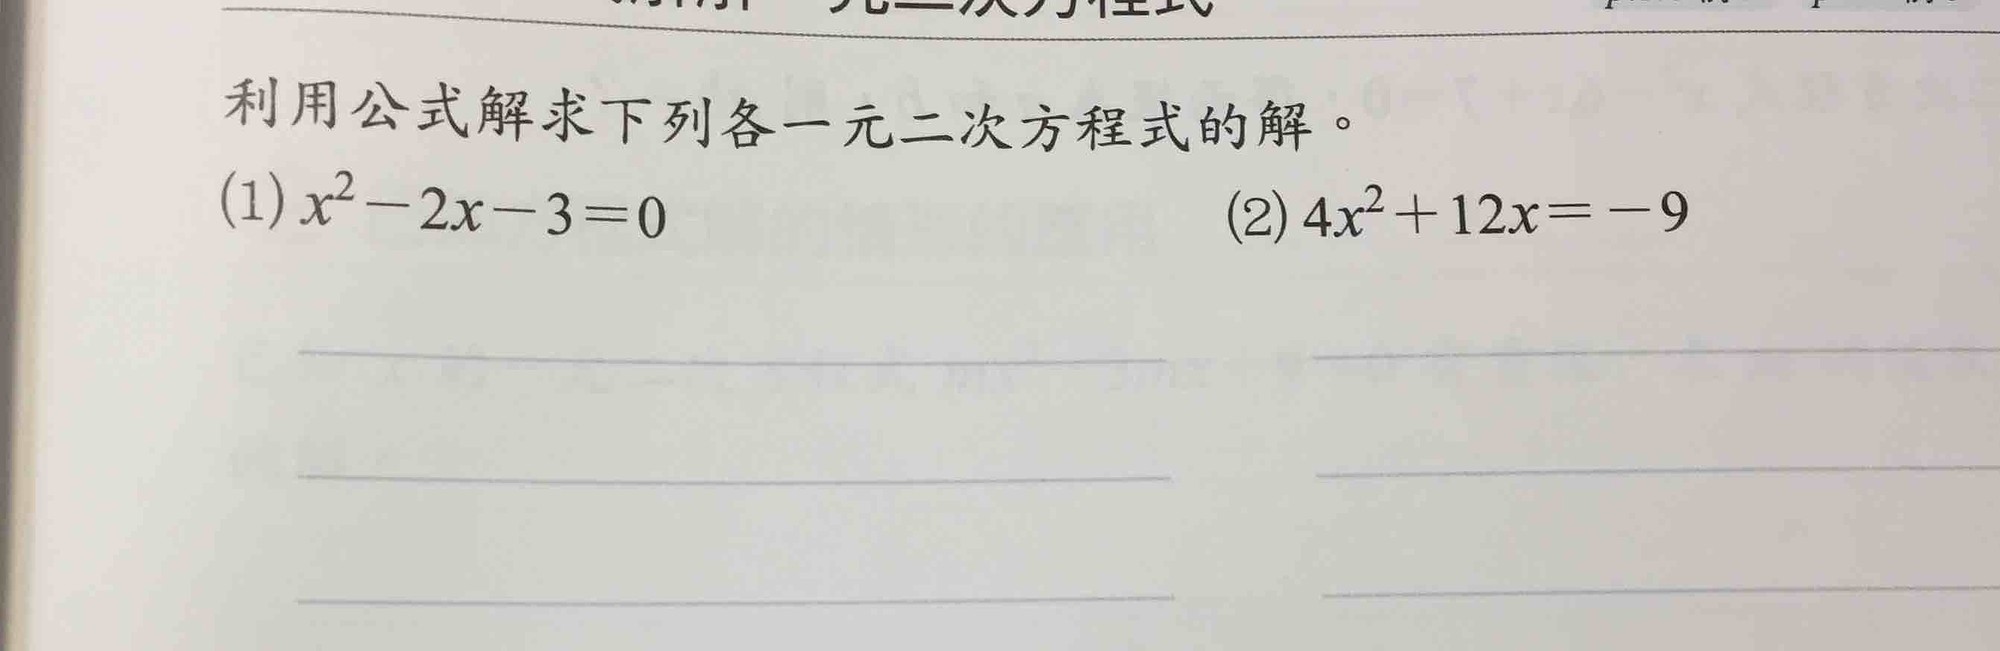 一元二次方程式
利用公式解求下列各一元二次方程式的解。
(1) x²－2x－3＝0
(2) 4x²＋12x＝－9